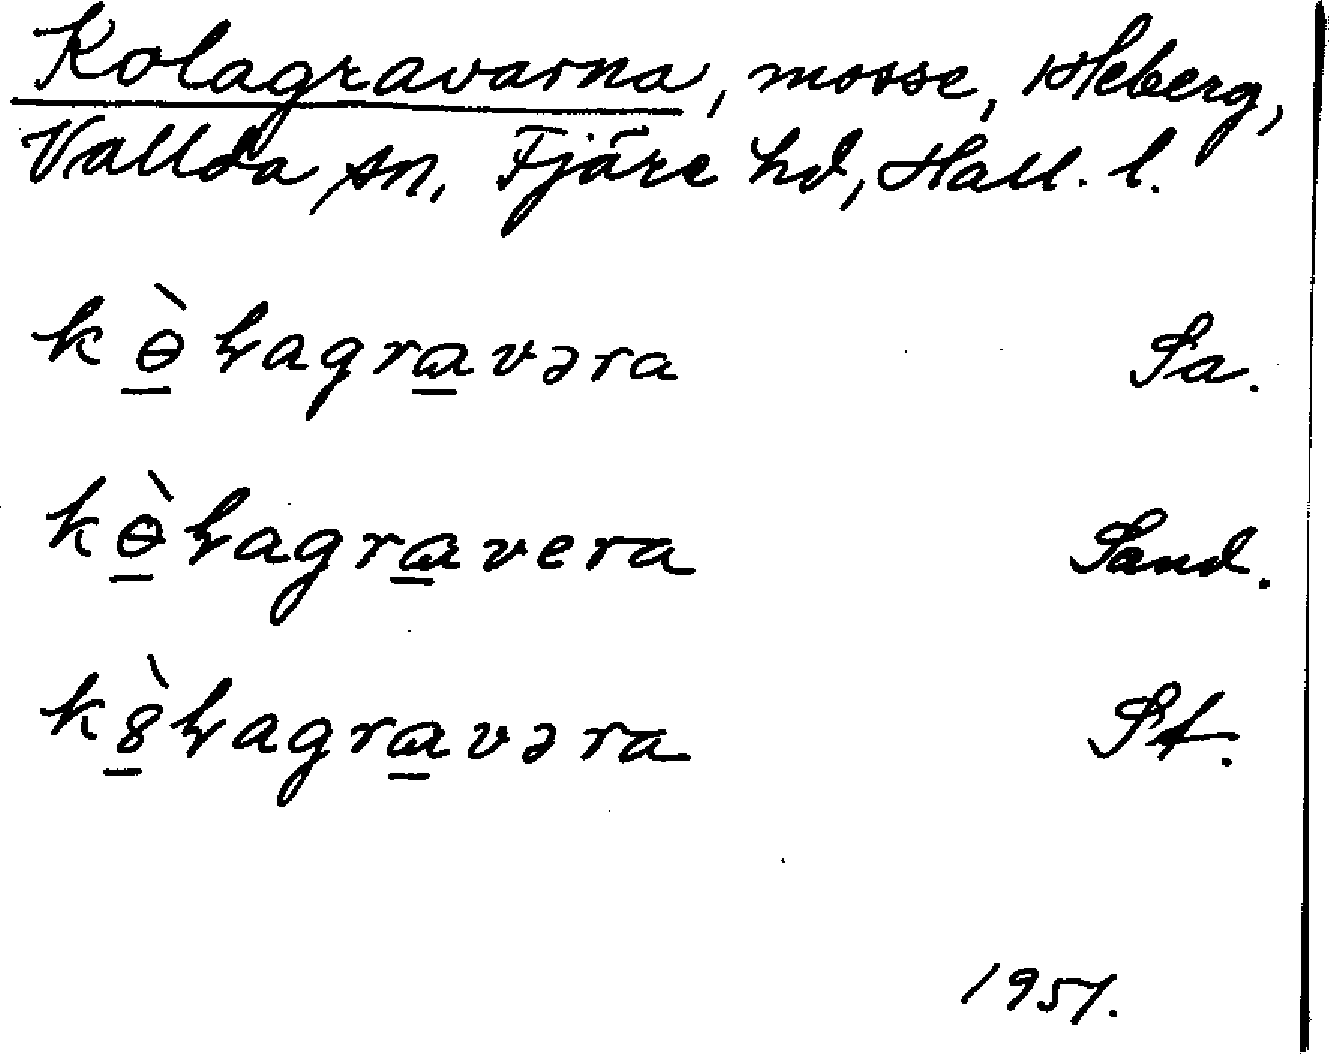 Kolagravarna, mosse, Heberg,
Vallda sn, Fjäre hd, Hall. l.
kɵ̲̀ɫagrɑ̲vəra Sa.
kɵ̲̀ɫagrɑ̲vera Sand.
k8̲̀ɫagrɑ̲vəra St.
1951.